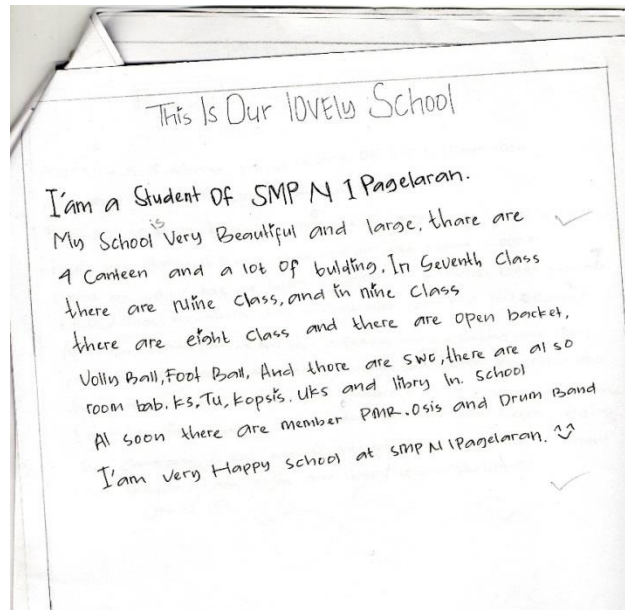 This Is Our lovely School
I'am a Student Of SMP N 1 Pagelaran.
My School is Very Beautiful and large, thare are
4 Canteen and a lot of bulding. In Seventh Class
there are Nine Class, and in nine Class
there are eight Class and there are open backet,
Volly Ball, Foot Ball, And thore are swc, there are al so
room bab. Ks, Tu, Kopsis. Uks and libry In. School
Al soon there are member PMR. Osis and Drum Band
I'am very Happy school at SMP N 1 Pagelaran. ^^